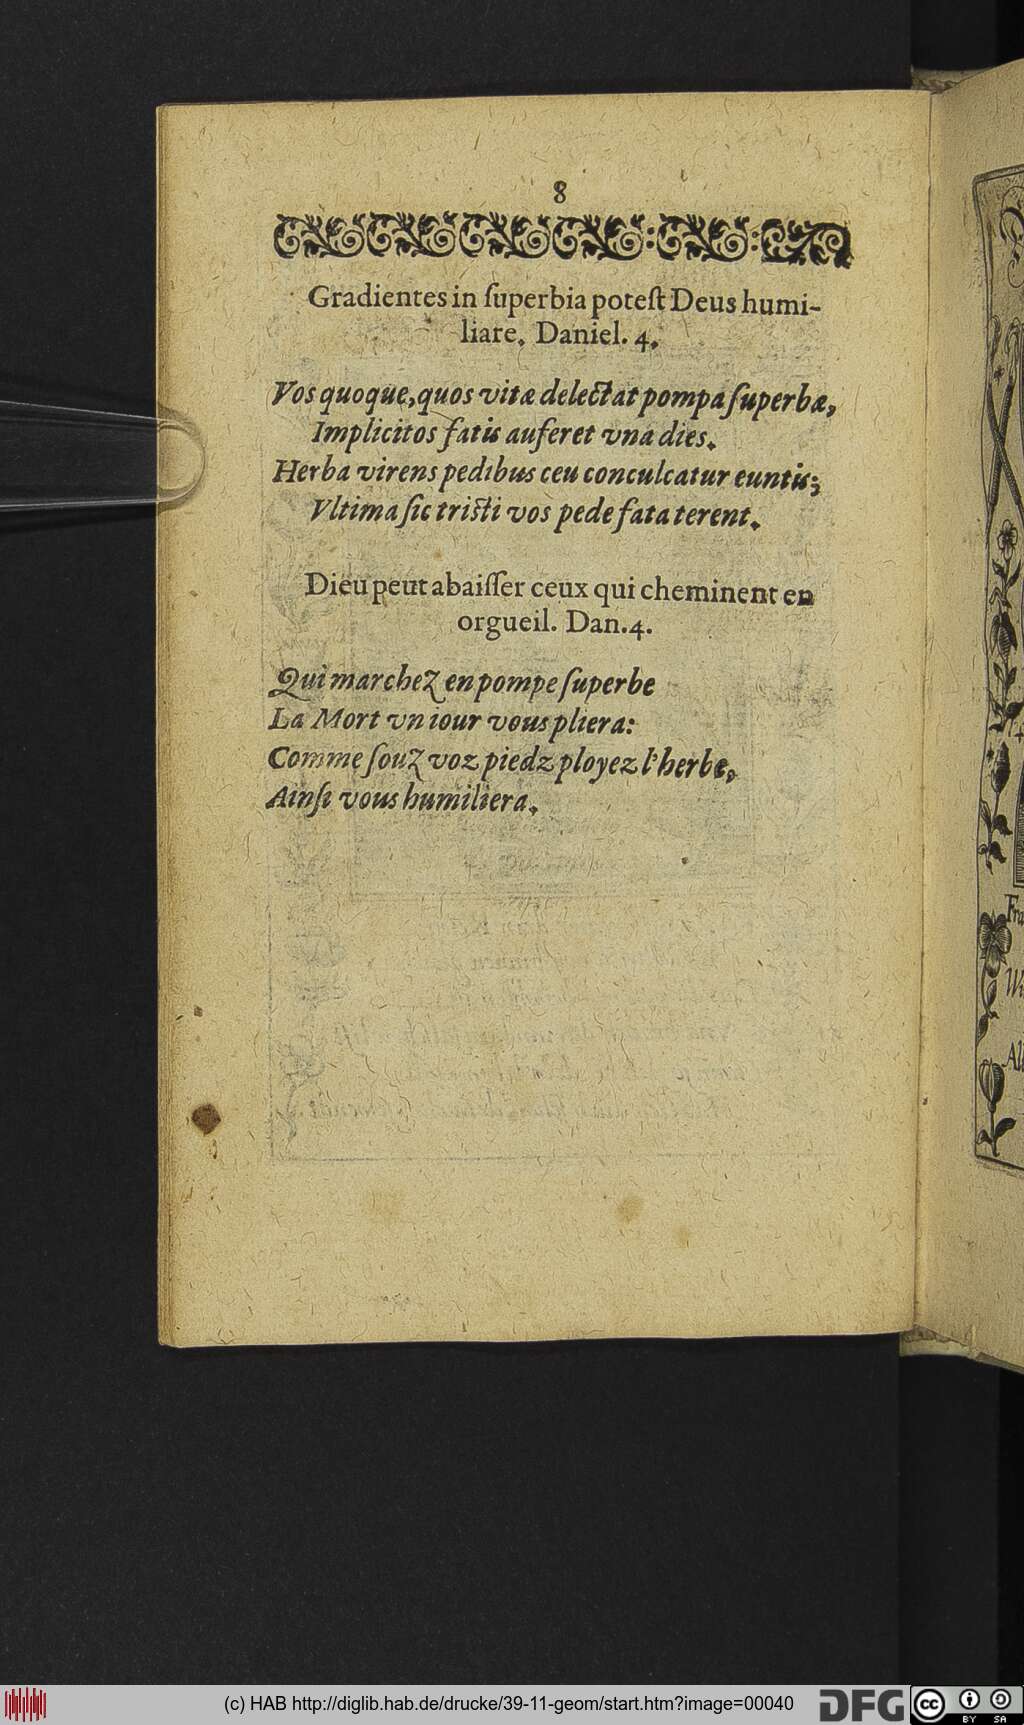 8
Gradientes in ſuperbia poteſt Deus humi-
liare. Daniel. 4.
Vos quoque, quos vitæ delectat pompa ſuperbæ,
Implicitos fatis auferet vna dies.
Herba virens pedibus ceu conculcatur euntis;
Vltima ſic triſti vos pede fata terent.
Dieu peut abaiſſer ceux qui cheminent en
orgueil. Dan. 4.
Qui marchez en pompe ſuperbe
La Mort vn iour vous pliera:
Comme ſouz voz piedz ployez l'herbe,
Ainſi vous humiliera.
Fru
Wi
All
(c) HAB http://diglib.hab.de/drucke/39-11-geom/start.htm?image=00040
DFG
cc
BY SA